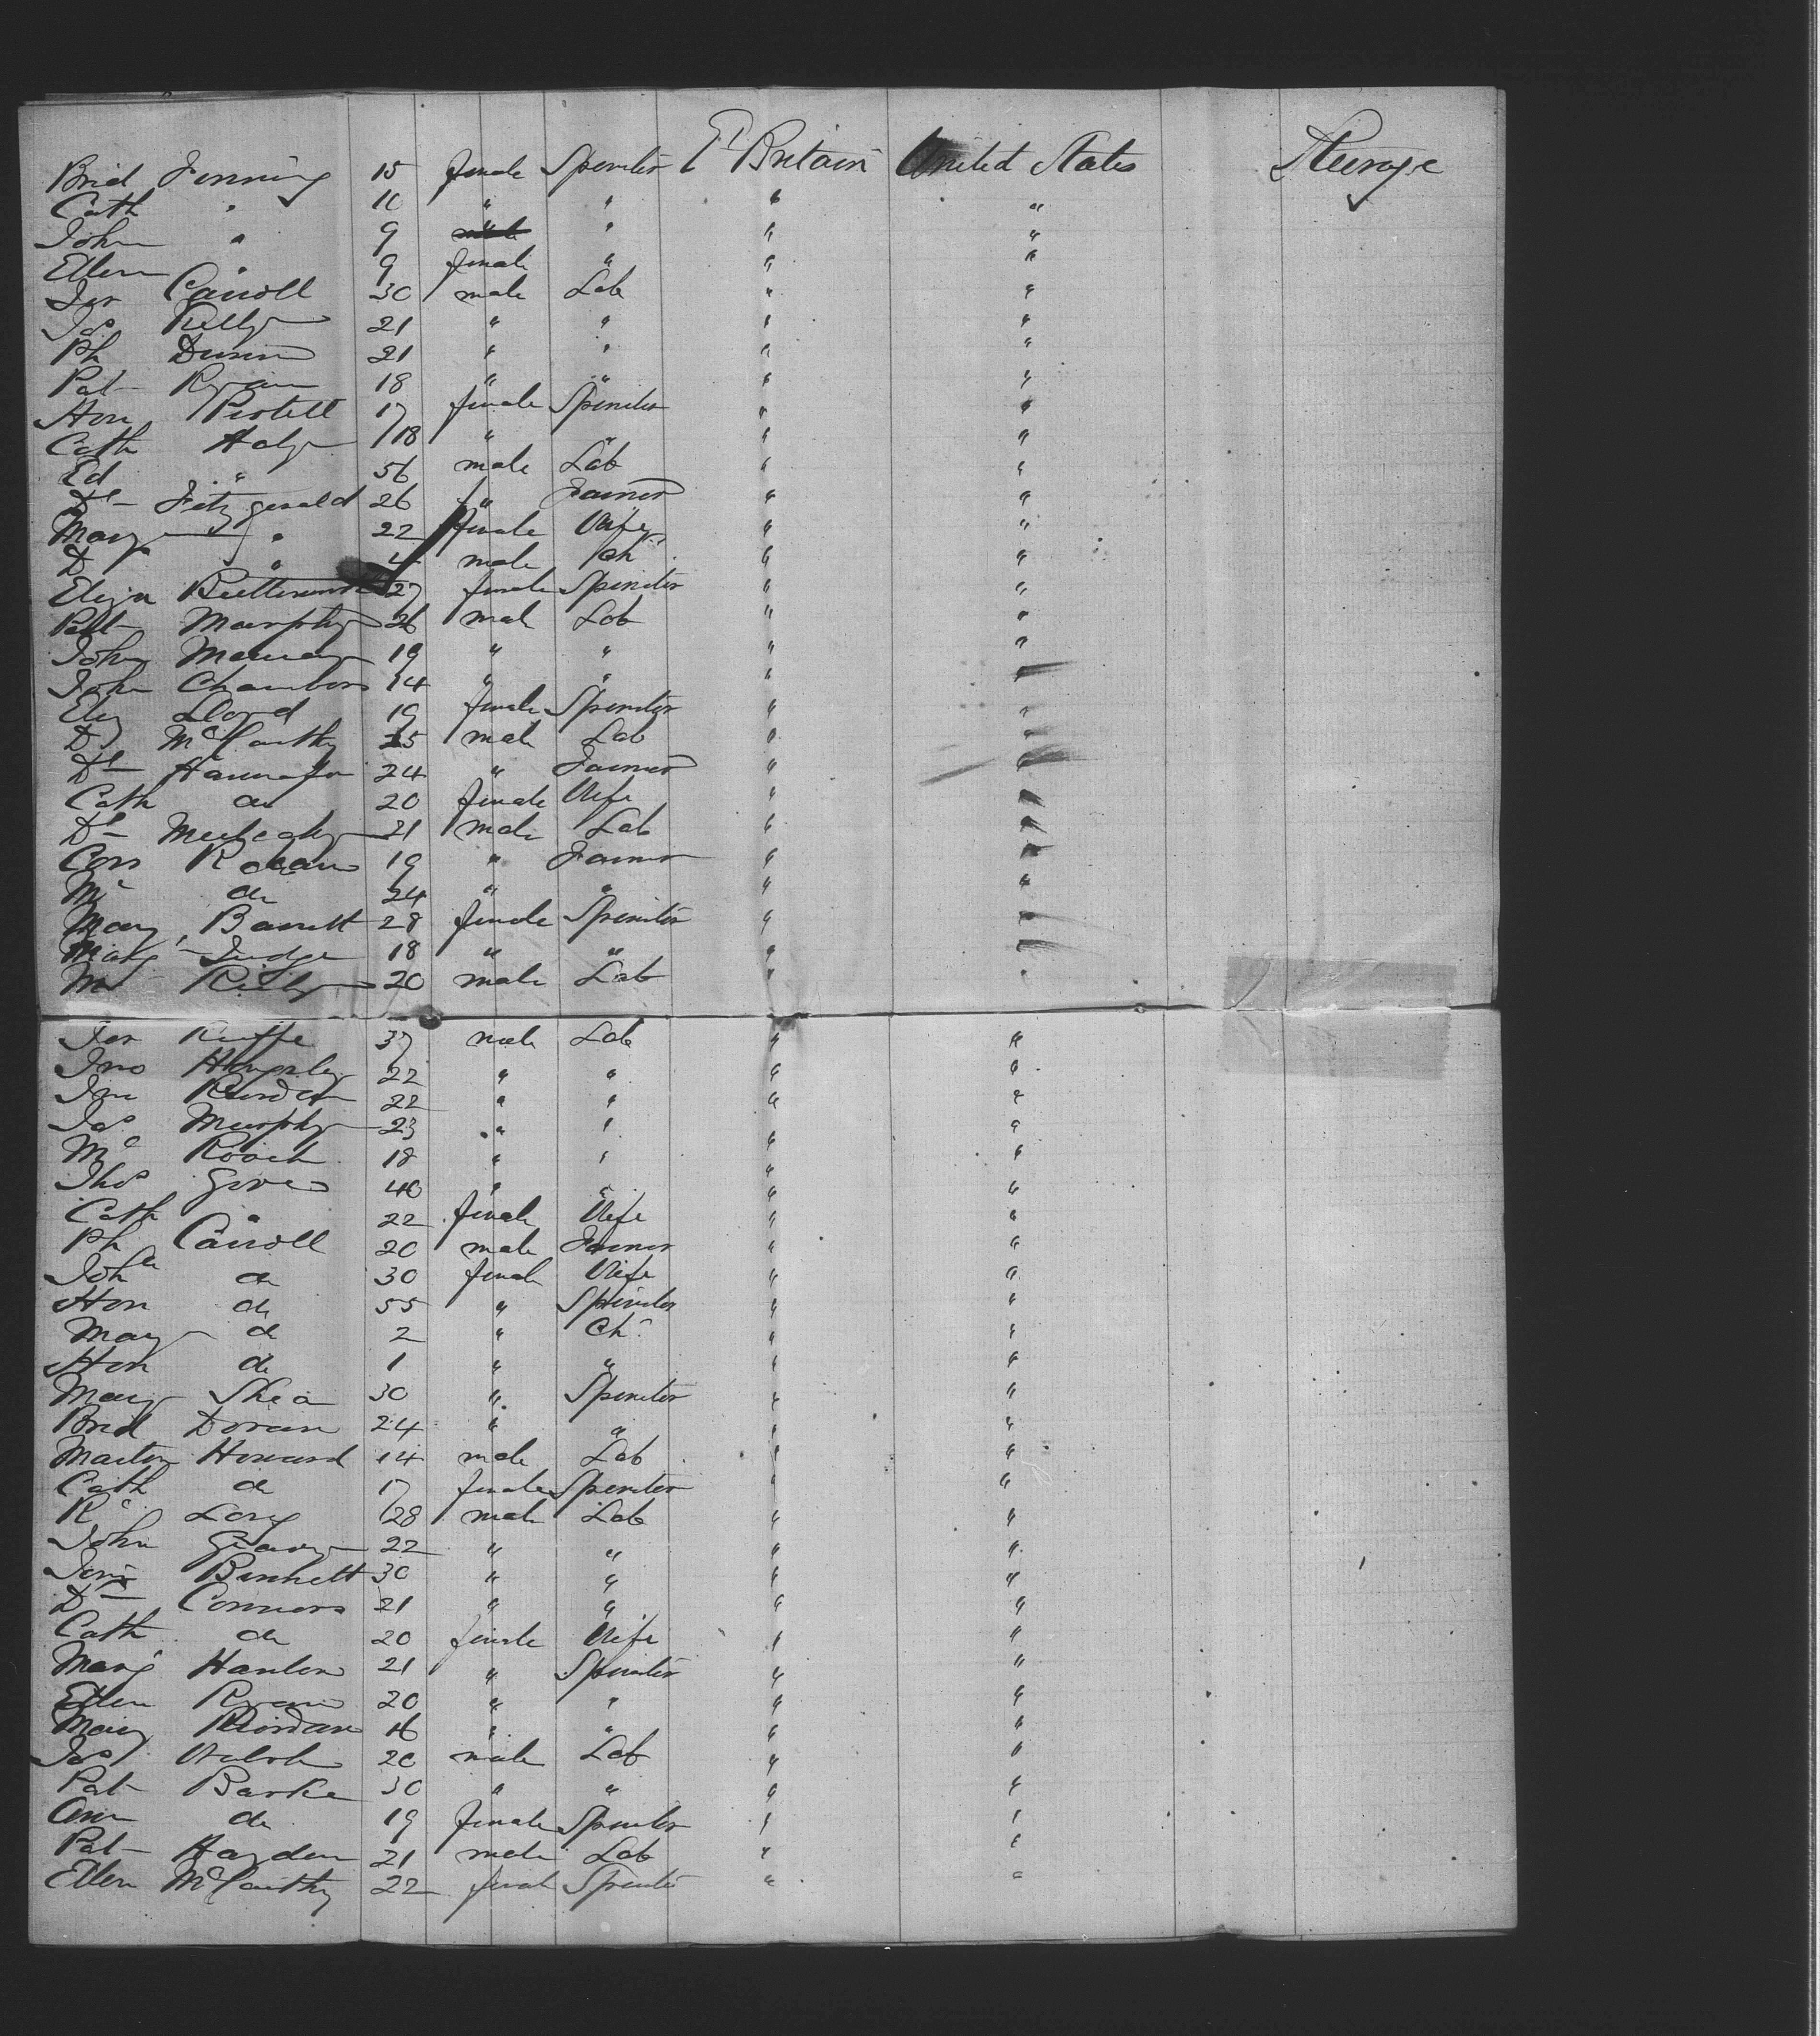 Brid Jenning 15 female Spinster Gt Britain United States Steerage
Cath " 10 " " " "
John " 9 " " "
Ellen " 9 female " " "
Jer Carroll 30 male Lab " "
Jas Kelly 21 " " " "
Ph Dunn 21 " " " "
Pat Ryan 18 " " " "
Hon 17 female Spinster " "
Cath 18 " " " "
Ed " 56 male Lab " "
Dl Fitzgerald 26 " Farmer " "
Mary " 22 female Wife " "
D " 4 male Ch " "
Eliza Butterworth 27 female Spinster " "
Patt Murphy 26 male Lab " "
John 19 " " " "
John Chambers 14 " " " "
Eliz Lloyd 19 female Spinster " "
D McCarthy 25 male Lab " "
Dl 24 " Farmer " "
Cath do 20 female Wife " "
Dl 21 male Lab " "
Con 19 " Farmer " "
Ml do 24 " " " "
Mary Barrett 28 female Spinster " "
Marg Judge 18 " " " "
Ml 20 male Lab " "
Jer 37 male Lab " "
Jno 22 " " " "
Jno 22 " " " "
Jas Murphy 23 " " " "
Ml Roach 18 " " " "
Thos 40 " " " "
Cath " 22 female Wife " "
Ph Carroll 20 male Farmer " "
Joha do 30 female Wife " "
Hon do 55 " Spinster " "
Mary do 2 " Ch " "
Hon do 1 " " " "
Mary Shea 30 " Spinster " "
Brid Doran 24 " " " "
Martin Howard 14 male Lab " "
Cath do 17 female Spinster " "
Rd Long 28 male Lab " "
John 22 " " " "
Bennett 30 " " " "
Dl Connors 21 " " " "
Cath do 20 female Wife " "
Marg Hanlon 21 " Spinster " "
Ellen Ryan 20 " " " "
Mary Riordan 16 " " " "
Jas Walsh 20 male Lab " "
Pat Barke 30 " " " "
Ann do 19 female Spinster " "
Pat Hayden 21 male Lab " "
Ellen McCarthy 22 female Spinster " "